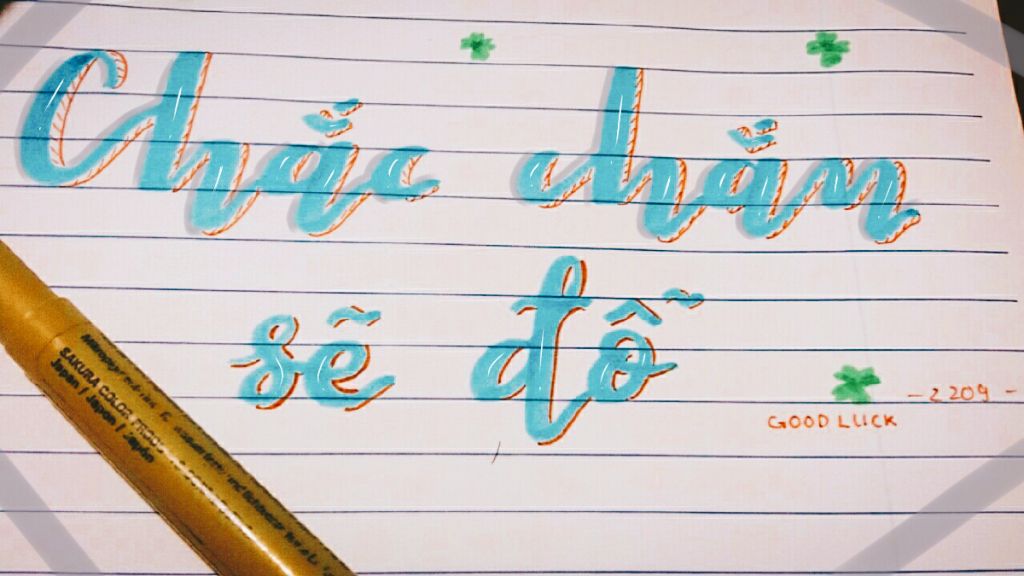 Chắc chắn
sẽ đỗ
- 2209 -
GOOD LUCK
SAKURA COLOR PROD
Japan / Japon / Japón